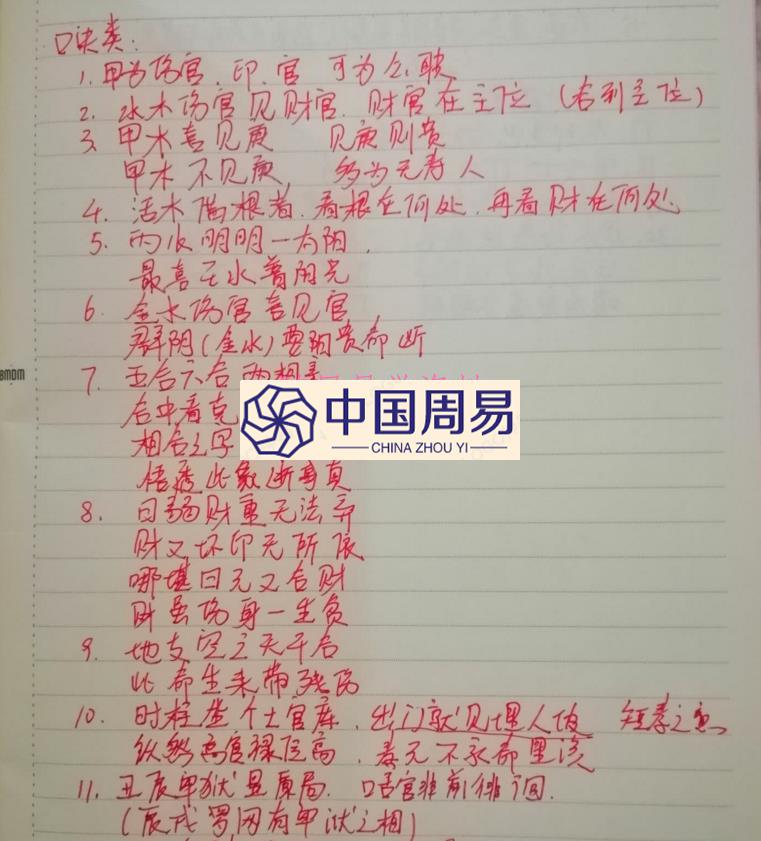 口诀类:
1. 甲为伤官、印、官 可为公职
2. 水木伤官见财官、财官在主位(右到主位)
3. 甲木喜见庚 见庚则贵
甲木不见庚 多为无寿人
4. 活木偏根者、看根在何处、再看财在何处
5. 丙火明明一太阳、
最喜壬水著阳光
6. 金水伤官喜见官
群阴(金水)要阳贵命断
7. 五合六合两相
合中看克
相合之字
悟透此象断事真
8. 日弱财重无法弃
财又坏印无所依
哪堪日元又合财
财虽伤身一生负
9. 地支空亡天干合
此命生来带残伤
10. 时柱坐个土官库、出门就见埋人坡 短寿之意
纵然高官禄位高、寿元不永命里该
11. 丑辰甲狱显原局、唔官非前徘徊
(辰戌罗网有甲狱之相)
中国周易
CHINA ZHOU YI